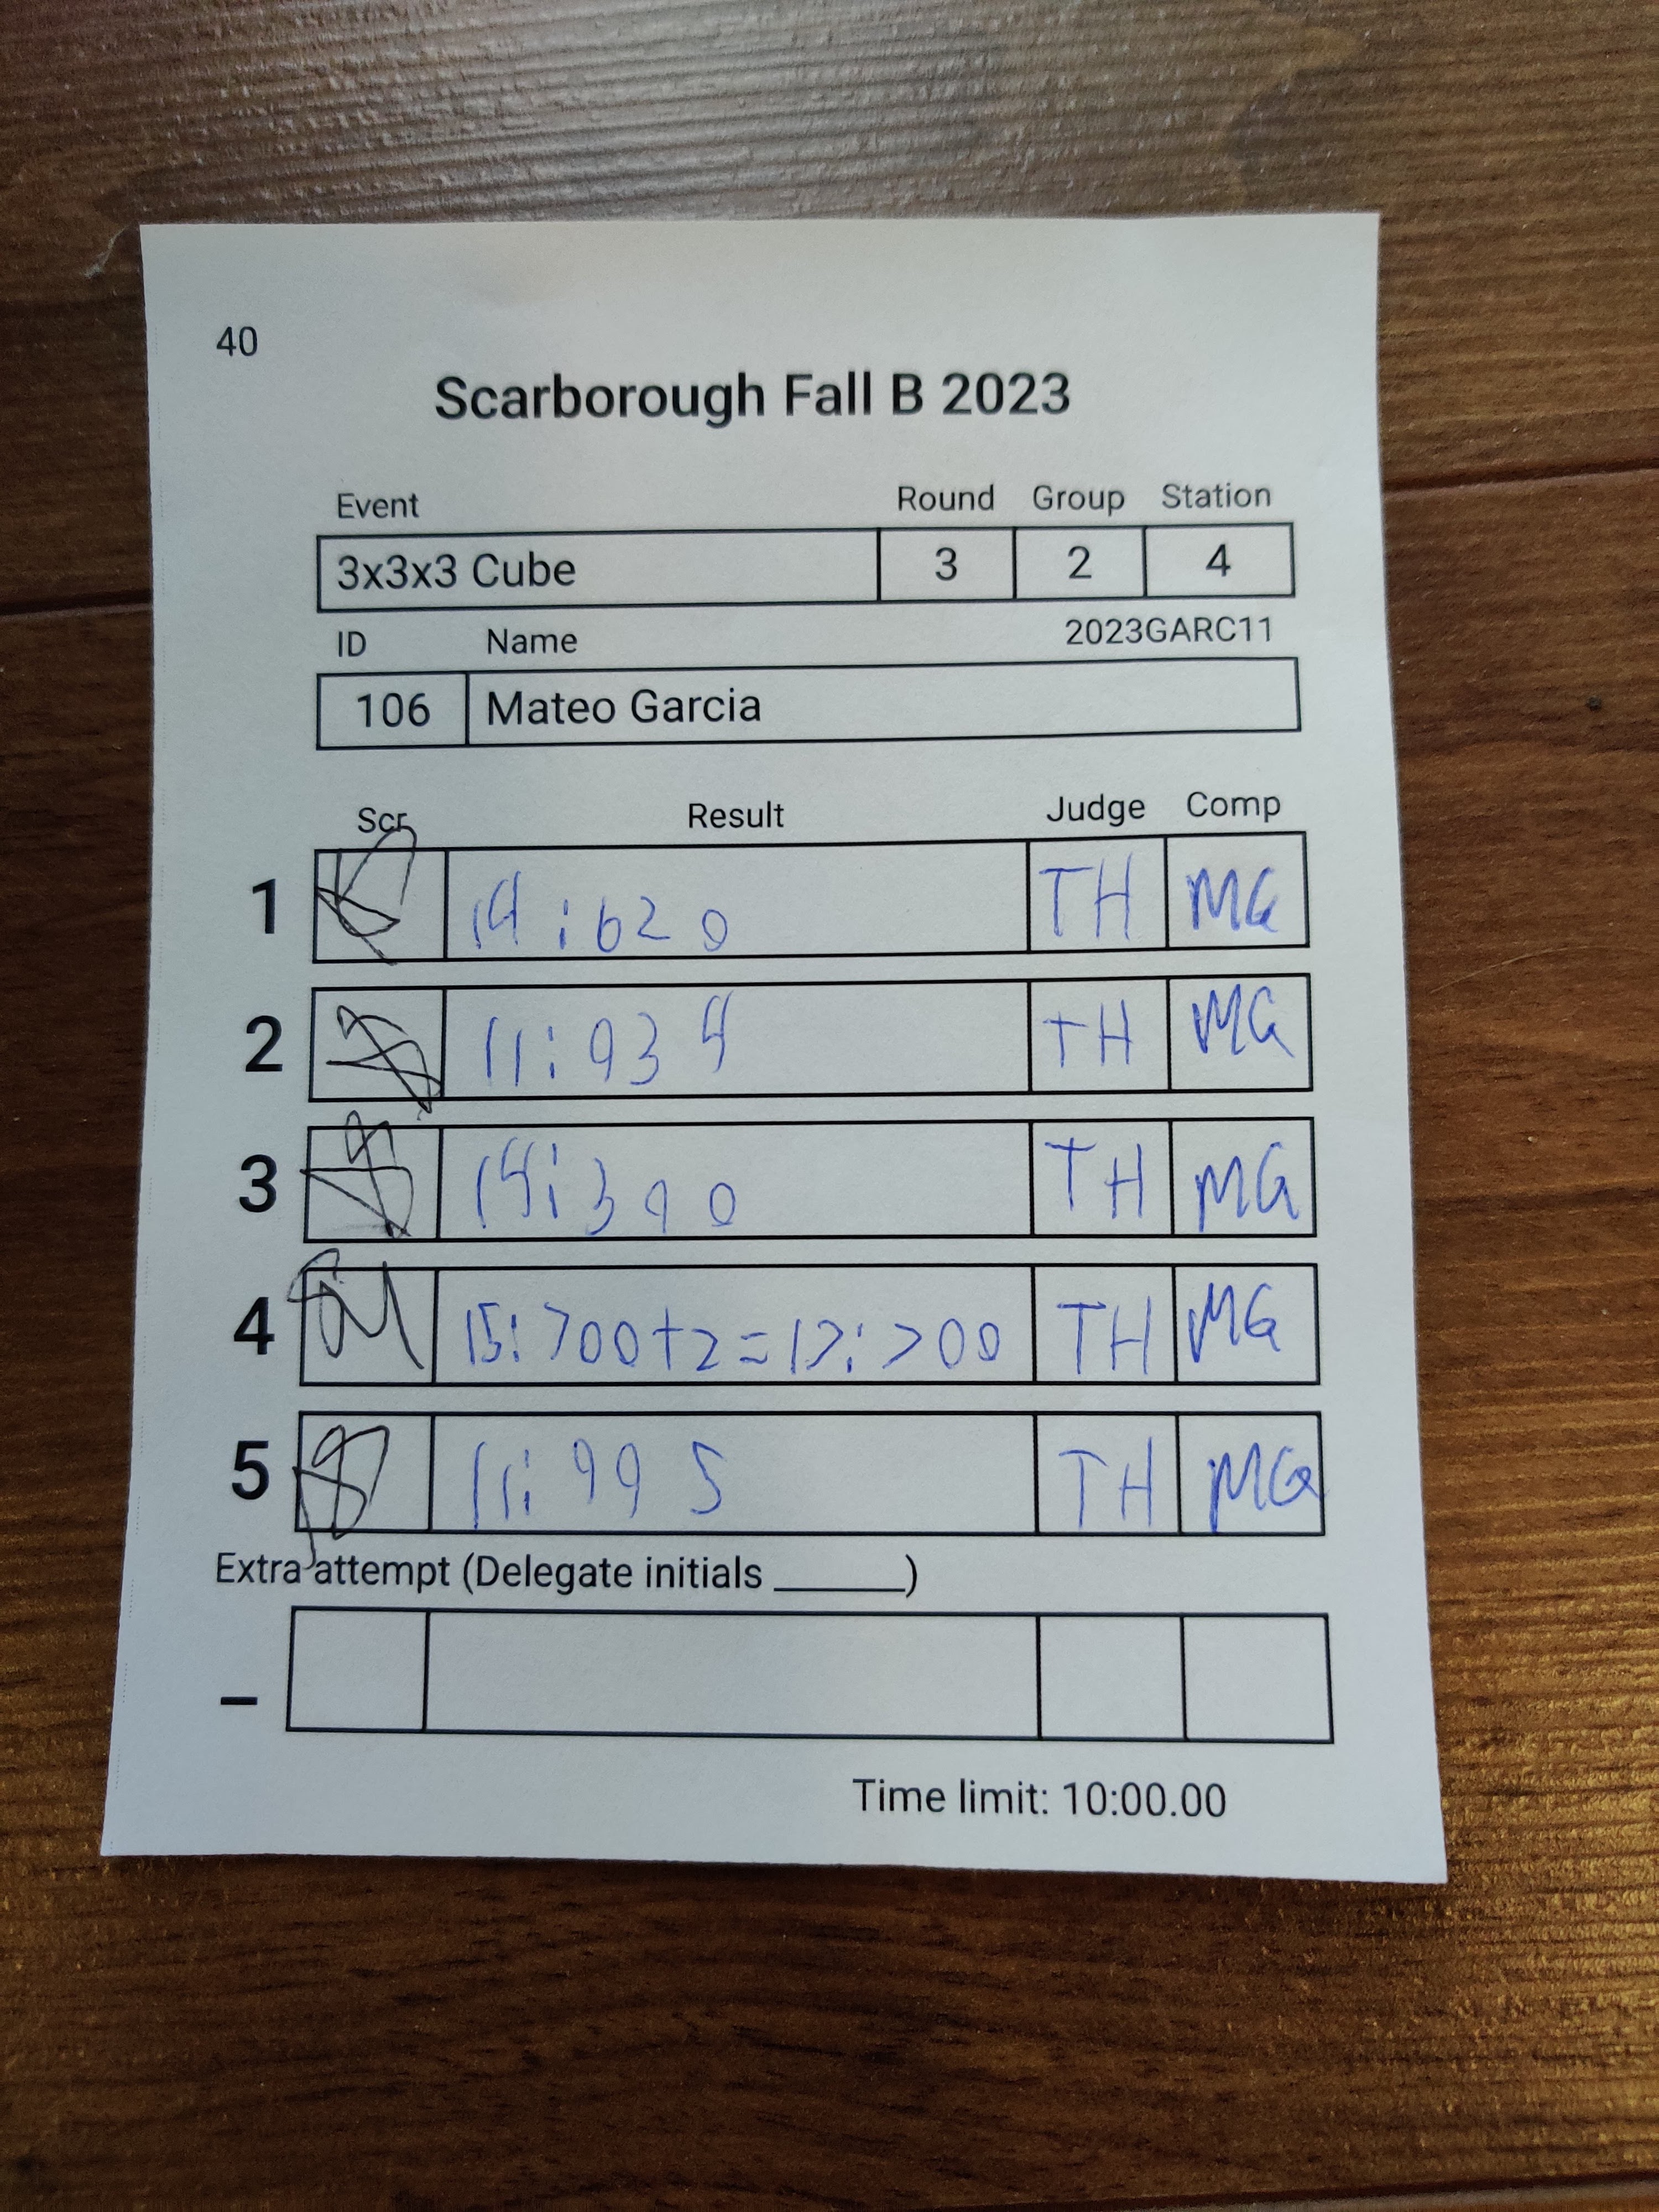 40
Scarborough Fall B 2023
Event Round Group Station
3x3x3 Cube 3 2 4
ID Name 2023GARC11
106 Mateo Garcia
Scr Result Judge Comp
1 14:620 TH MG
2 11:934 TH MG
3 14:390 TH MG
4 15:700+2=17:700 TH MG
5 11:995 TH MG
Extra attempt (Delegate initials ______)
–
Time limit: 10:00.00